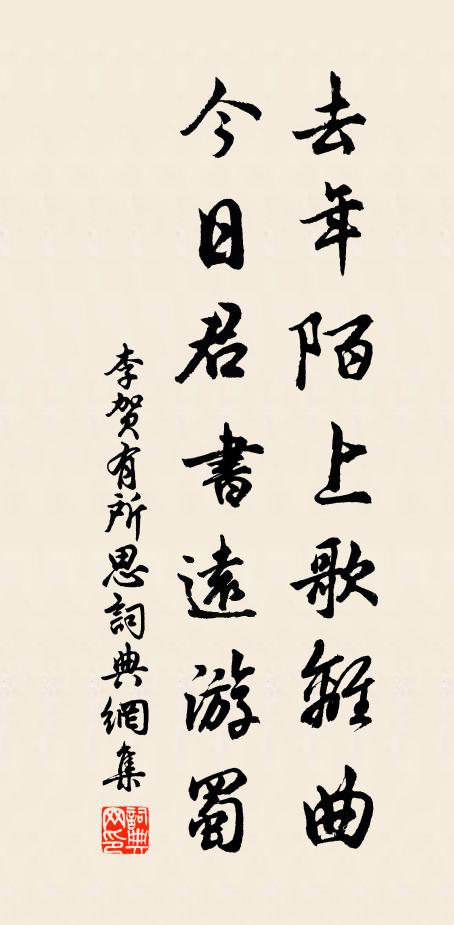 去年陌上歌離曲
今日君書遠游蜀
李賀有所思詞典網集
詞典网印